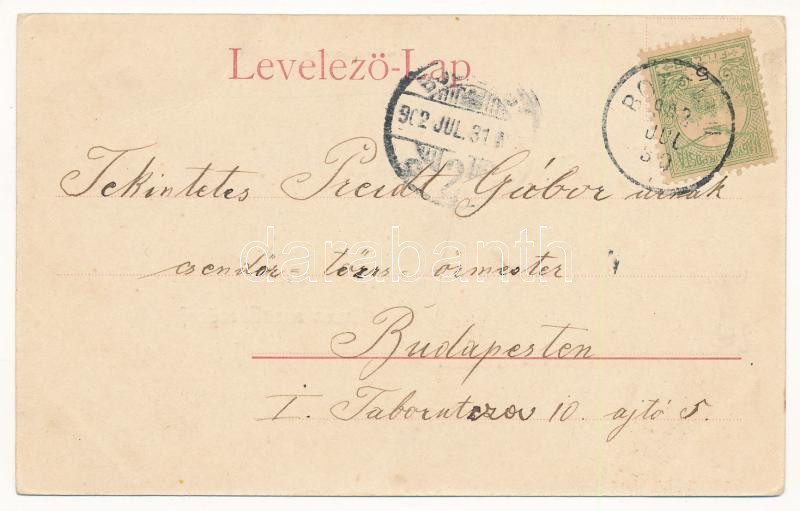 Levelező-Lap
902 JUL. 31
902
JUL
30
Tekintetes Preidt Gábor úrnak
csendőr- törzs- őrmester
Budapesten
I. Táborutcza 10. ajtó 5.
darabanth